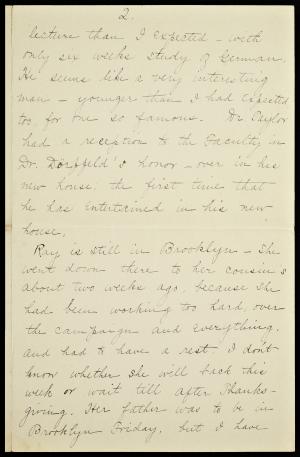 2.
lecture than I expected - with
only six weeks study of German.
He seems like a very interesting
man - younger than I had expected
too, for one so famous. Dr. Taylor
had a reception to the Faculty in
Dr. Dörpfeld's honor - over in his
new house, the first time that
he has entertained in his new
house.
Ray is still in Brooklyn - She
went down there to her cousin's
about two weeks ago, because she
had been working too hard, over
the campaign and everything,
and had to have a rest. I don't
know whether she will back this
week or wait till after Thanks-
giving. Her father was to be in
Brooklyn Friday, but I have